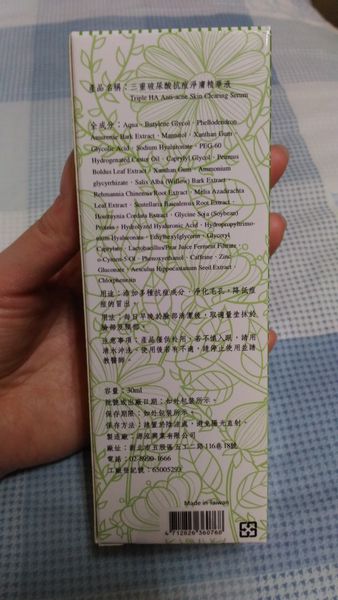 產品名稱：三重玻尿酸抗痘淨膚精華液
Triple HA Anti-acne Skin Clearing Serum
全成分：Aqua、Butylene Glycol、Phellodendron
Amurense Bark Extract、Mannitol、Xanthan Gum
Glycolic Acid、Sodium Hyaluronate、PEG-60
Hydrogenated Castor Oil、Caprylyl Glycol、Peumus
Boldus Leaf Extract、Xanthan Gum、Ammonium
glycyrrhizate、Salix Alba (Willow) Bark Extract、
Rehmannia Chinensis Root Extract、Melia Azadirachta
Leaf Extract、Scutellaria Baicalensis Root Extract、
Houttuynia Cordata Extract、Glycine Soja (Soybean)
Protein、Hydrolyzed Hyaluronic Acid、Hydroxypropyltrimo-
nium Hyaluronate、Ethylhexylglycerin、Glyceryl
Caprylate、Lactobacillus/Pear Juice Ferment Filtrate
o-Cymen-5-Ol、Phenoxyethanol、Caffeine、Zinc
Gluconate、Aesculus Hippocastanum Seed Extract、
Chlorphenesin
用途：添加多種抗痘成分，淨化毛孔，降低痘
痘的冒出。
用法：每日早晚於臉部清潔後，取適量塗抹於
臉部及頸部。
注意事項：產品僅供外用，若不慎入眼，請用
清水沖洗。使用後若有不適，請停止使用並請
教醫師。
容量：30ml
批號或出廠日期：如外包裝所示。
保存期限：如外包裝所示。
保存方法：請置於陰涼處，避免陽光直射。
製造廠：源泓興業有限公司
廠址：新北市五股區五工二路116巷18號
電話：02-8990-1666
工廠登記號：65005293
Made in Taiwan
4 712826 360766